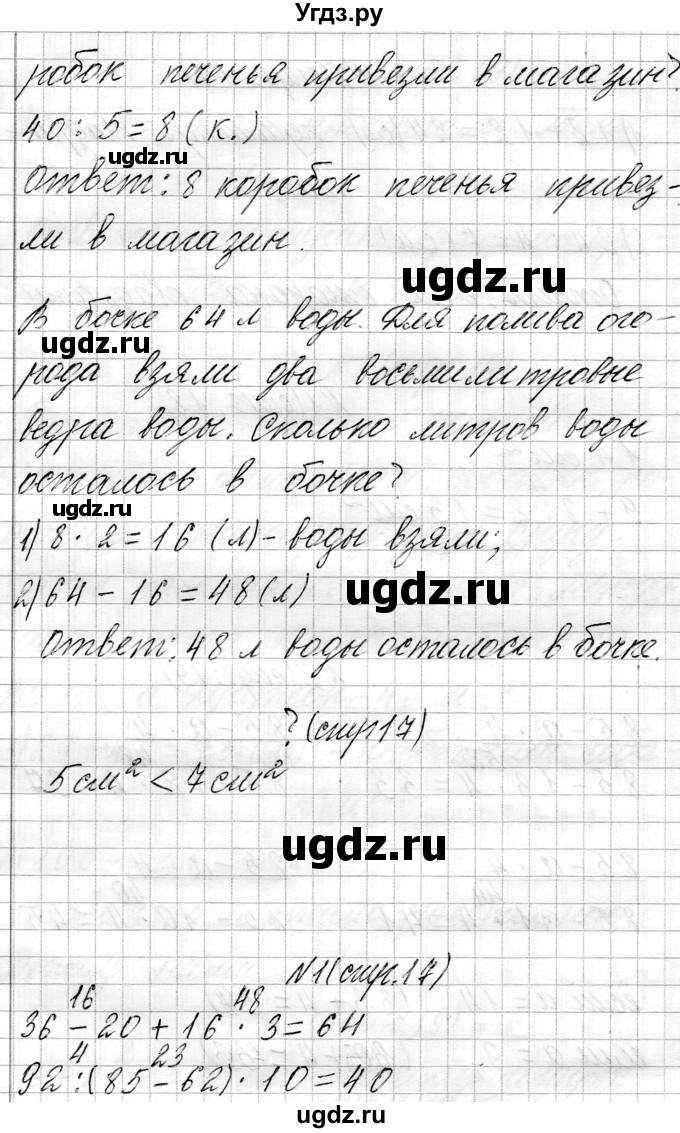 Угдз.ру
робок печенья привезли в магазин?
40 : 5 = 8 (к.)
ugdz.ru
Ответ: 8 коробок печенья привез-
ли в магазин.
ugdz.ru
В бочке 64 л воды. Для полива ого-
ugdz.ru
рода взяли два восьмилитровые
ведра воды. Сколько литров воды
осталось в бочке?
ugdz.ru
1) 8 · 2 = 16 (л) - воды взяли;
2) 64 - 16 = 48 (л)
ugdz.ru
Ответ: 48 л воды осталось в бочке.
? (стр 17)
5 см² < 7 см²
ugdz.ru
N1 (стр. 17)
16 48
36 - 20 + 16 · 3 = 64
4 23
92 : (85 - 62) · 10 = 40
ugdz.ru